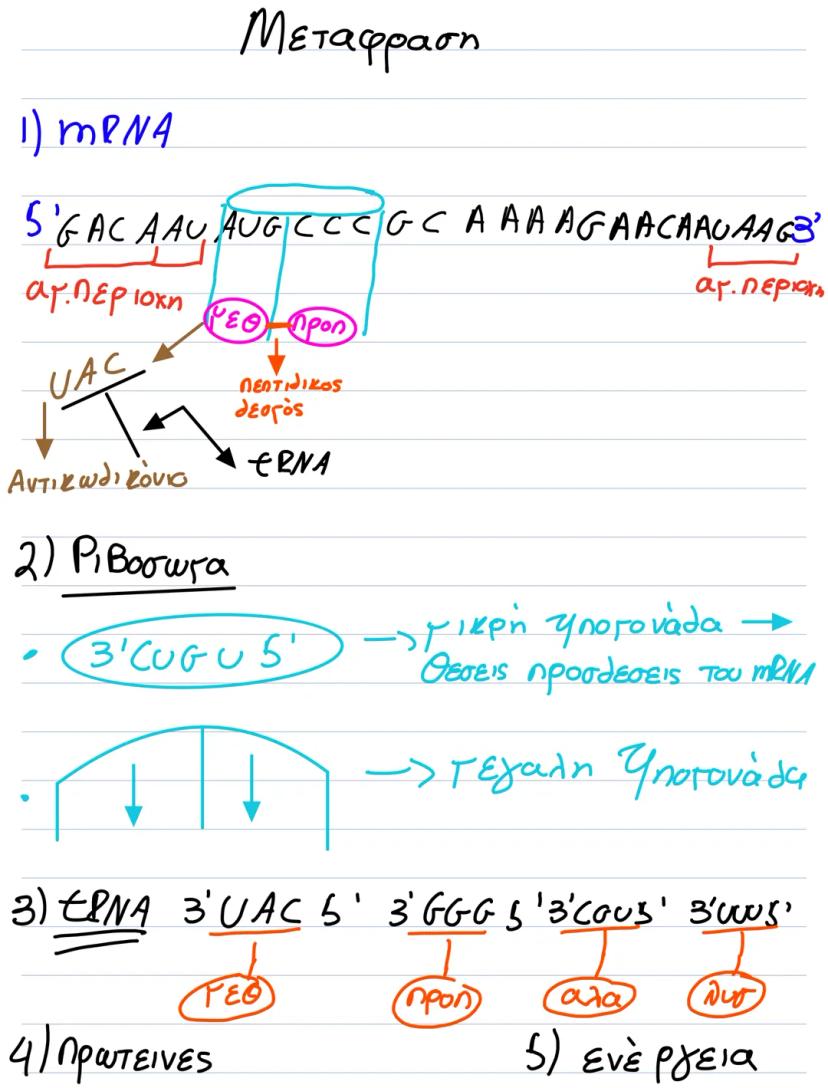 Μεταφραση
1) mRNA
5' GACAAU AUG CCC GC AAAAGAACAAUAAG 3'
αμ. περιοχη αμ. περιοχη
μεθ προλ
UAC πεπτιδικος
δεσμός
tRNA
Αντικωδικόνιο
2) Ριβοσωμα
• 3' CUGU 5' → μικρή Υπομονάδα →
Θεσεις προσδεσεις του mRNA
• → μεγαλη Υπομονάδα
3) tRNA 3' UAC 5' 3' GGG 5' 3' CGU 5' 3' UUU 5'
μεθ προλ αλα λυσ
4) Πρωτεινες 5) ενέργεια